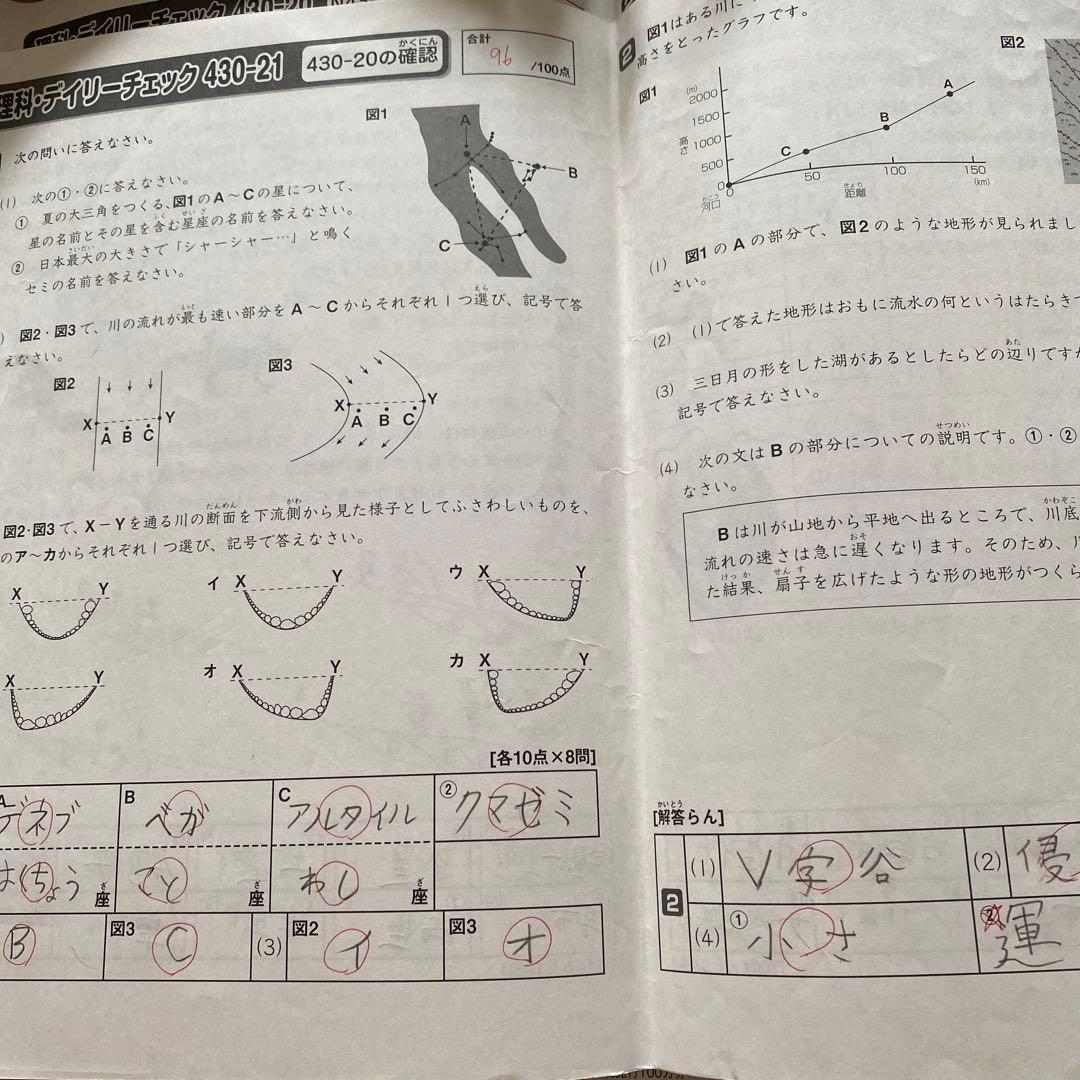 理科・デイリーチェック 430-21
430-20の確認
かくにん
合計
96
/100点
次の問いに答えなさい。
(1) 次の①・②に答えなさい。
① 夏の大三角をつくる、図1のA～Cの星について、
星の名前とその星を含む星座の名前を答えなさい。
② 日本最大の大きさで「シャーシャー…」と鳴く
セミの名前を答えなさい。
図1
A
B
C
図2・図3で、川の流れが最も速い部分をA～Cからそれぞれ1つ選び、記号で答
えなさい。
図2
X
Y
A B C
図3
X
Y
A B C
図2・図3で、X－Yを通る川の断面を下流側から見た様子としてふさわしいものを、
のア～カからそれぞれ1つ選び、記号で答えなさい。
X Y
イ X Y
ウ X Y
X Y
オ X Y
カ X Y
[各10点×8問]
A
デネブ
B
ベガ
C
アルタイル
②
クマゼミ
はくちょう 座
こと 座
わし 座
B
図3
C
(3)
図2
イ
図3
オ
2
図1はある川に
高さをとったグラフです。
図2
図1
(m)
2000
1500
1000
500
0
高さ
A
B
C
0
50
100
150
(km)
河口
距離
(1) 図1のAの部分で、図2のような地形が見られまし
さい。
(2) (1)で答えた地形はおもに流水の何というはたらき
(3) 三日月の形をした湖があるとしたらどの辺りですか
記号で答えなさい。
(4) 次の文はBの部分についての説明です。①・②
なさい。
Bは川が山地から平地へ出るところで、川底
流れの速さは急に遅くなります。そのため、
た結果、扇子を広げたような形の地形がつくら
[解答らん]
2
(1)
V字谷
(2)
侵
(4)
①
小さ
②
運